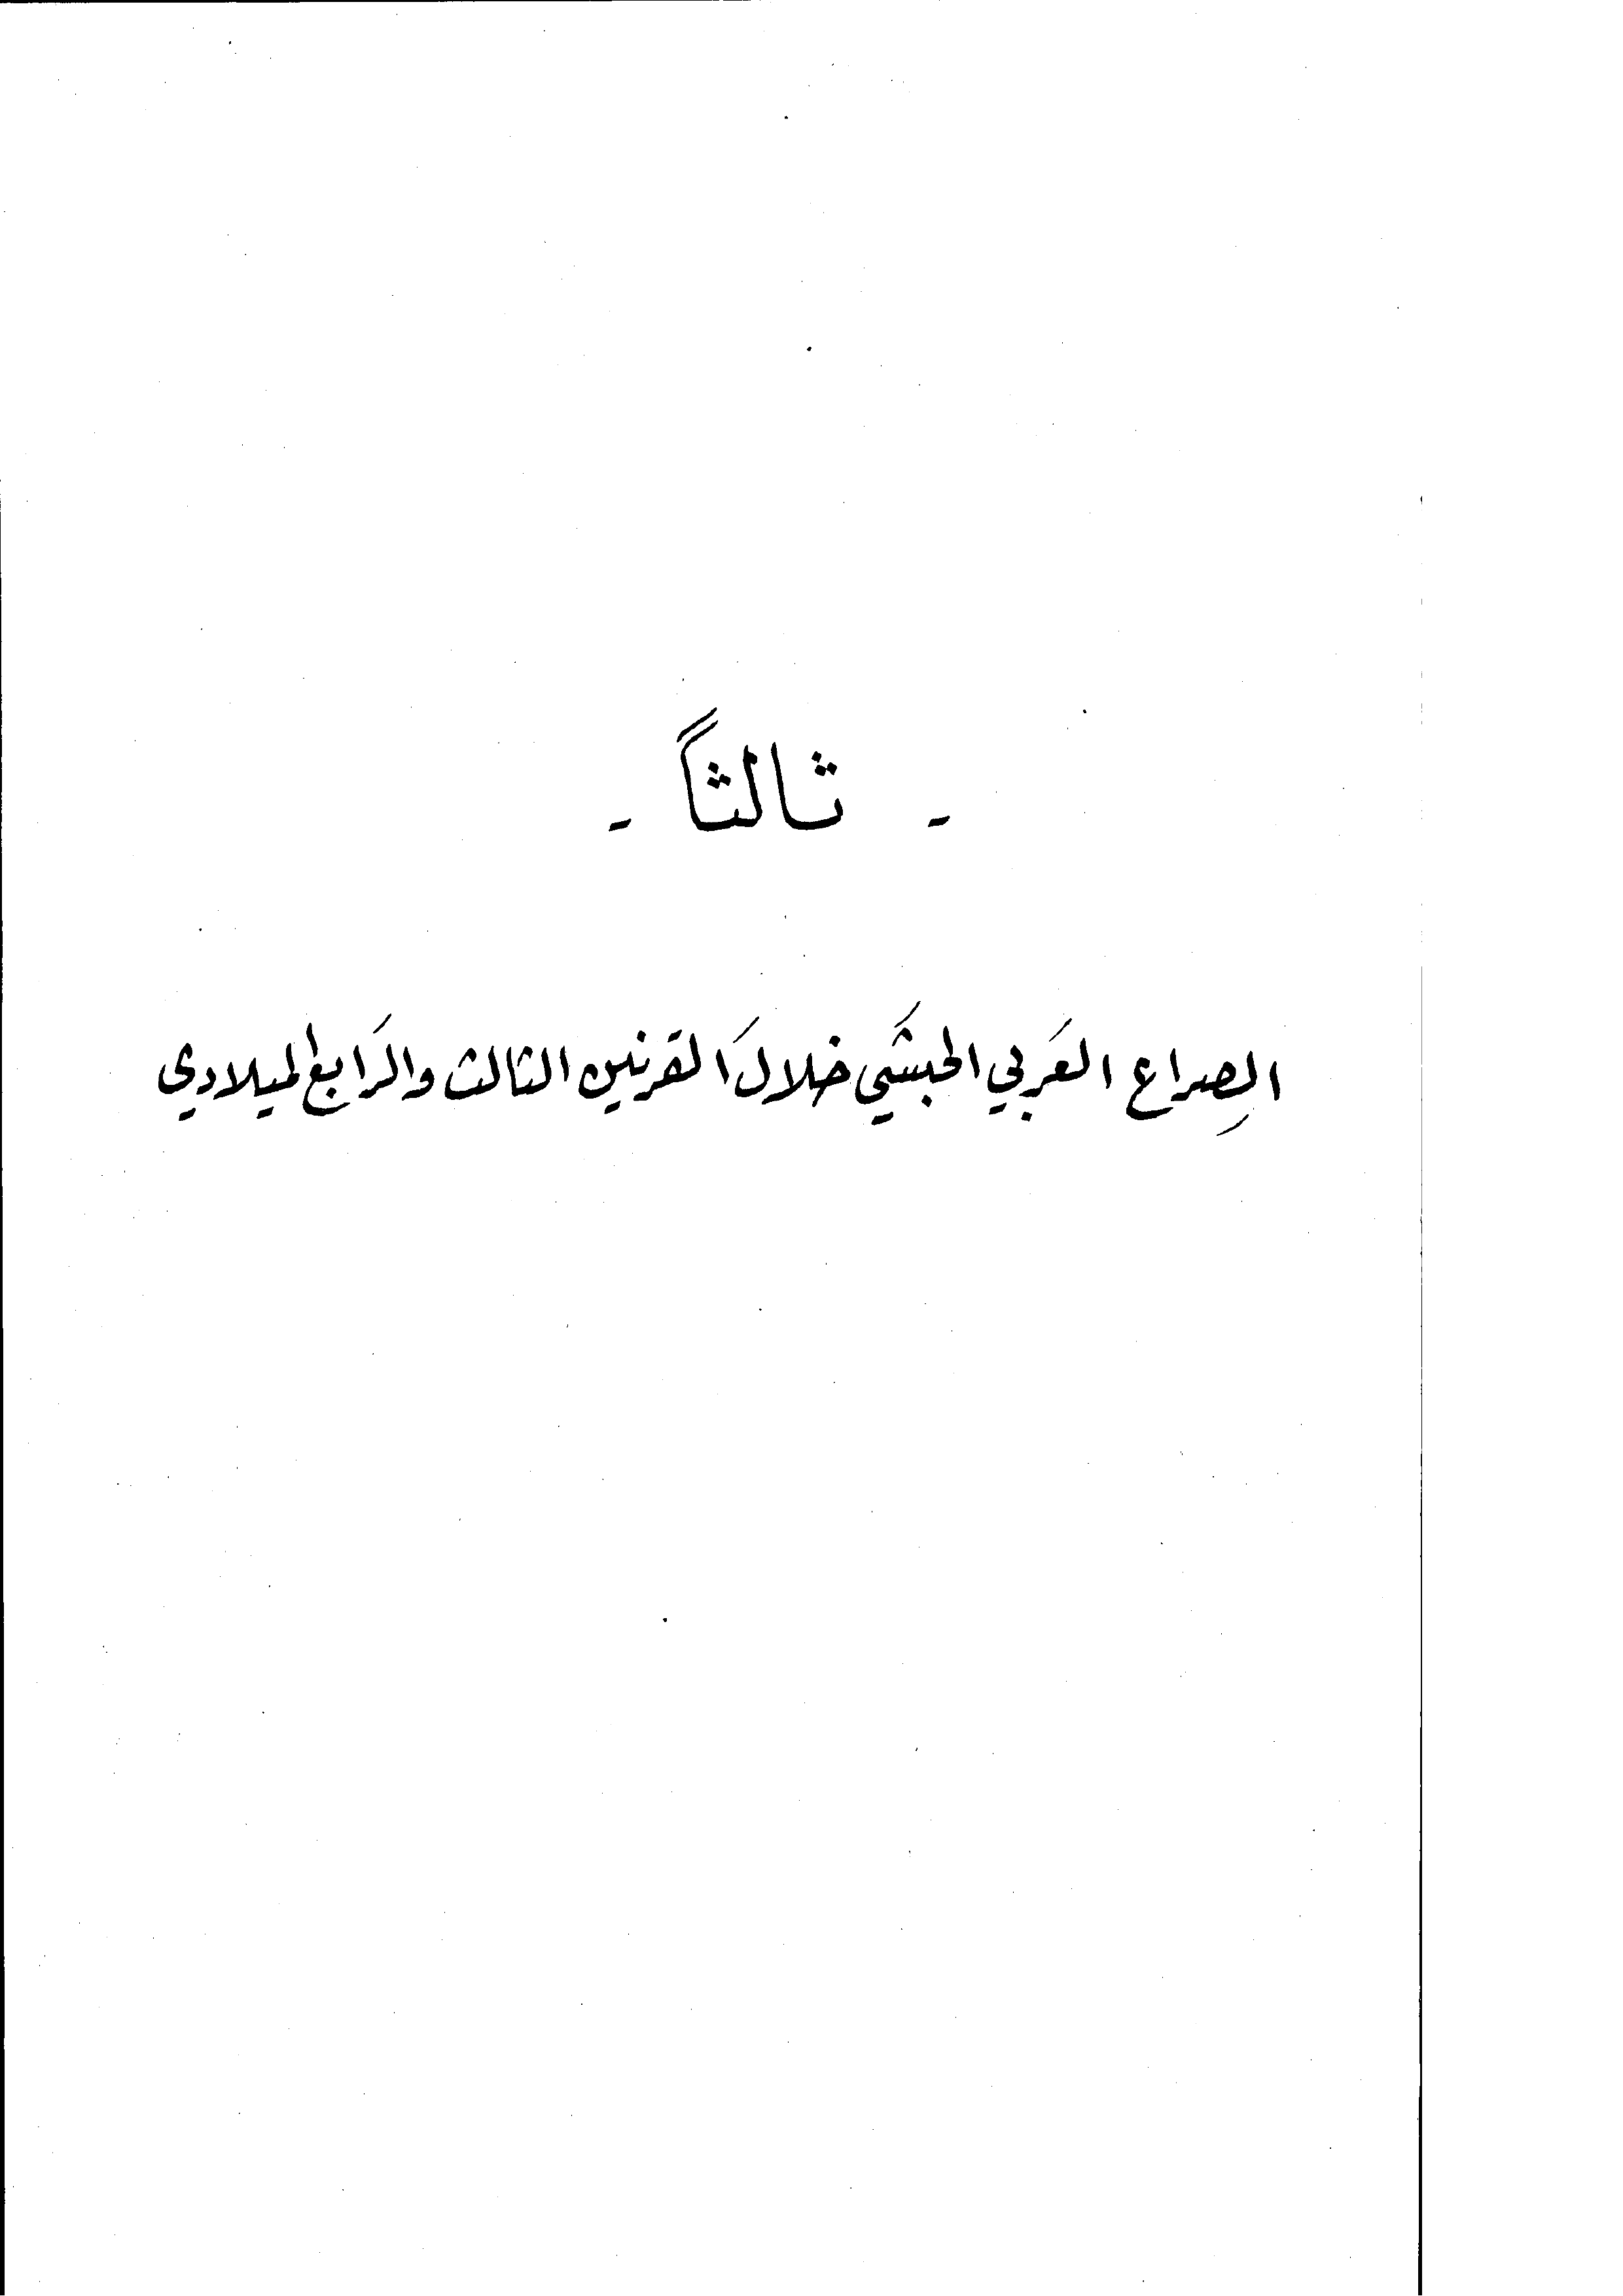 - ثالثاً -
الصِراع العَربي الحبشَي خلالَ القرنين الثالث والرَابع الميلادي